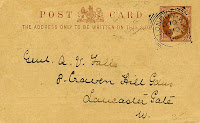 POST CARD
THE ADDRESS ONLY TO BE WRITTEN ON THIS SIDE
Genl. A. V. Falls
8. Craven Hill Gdns
Lancaster Gate
W.